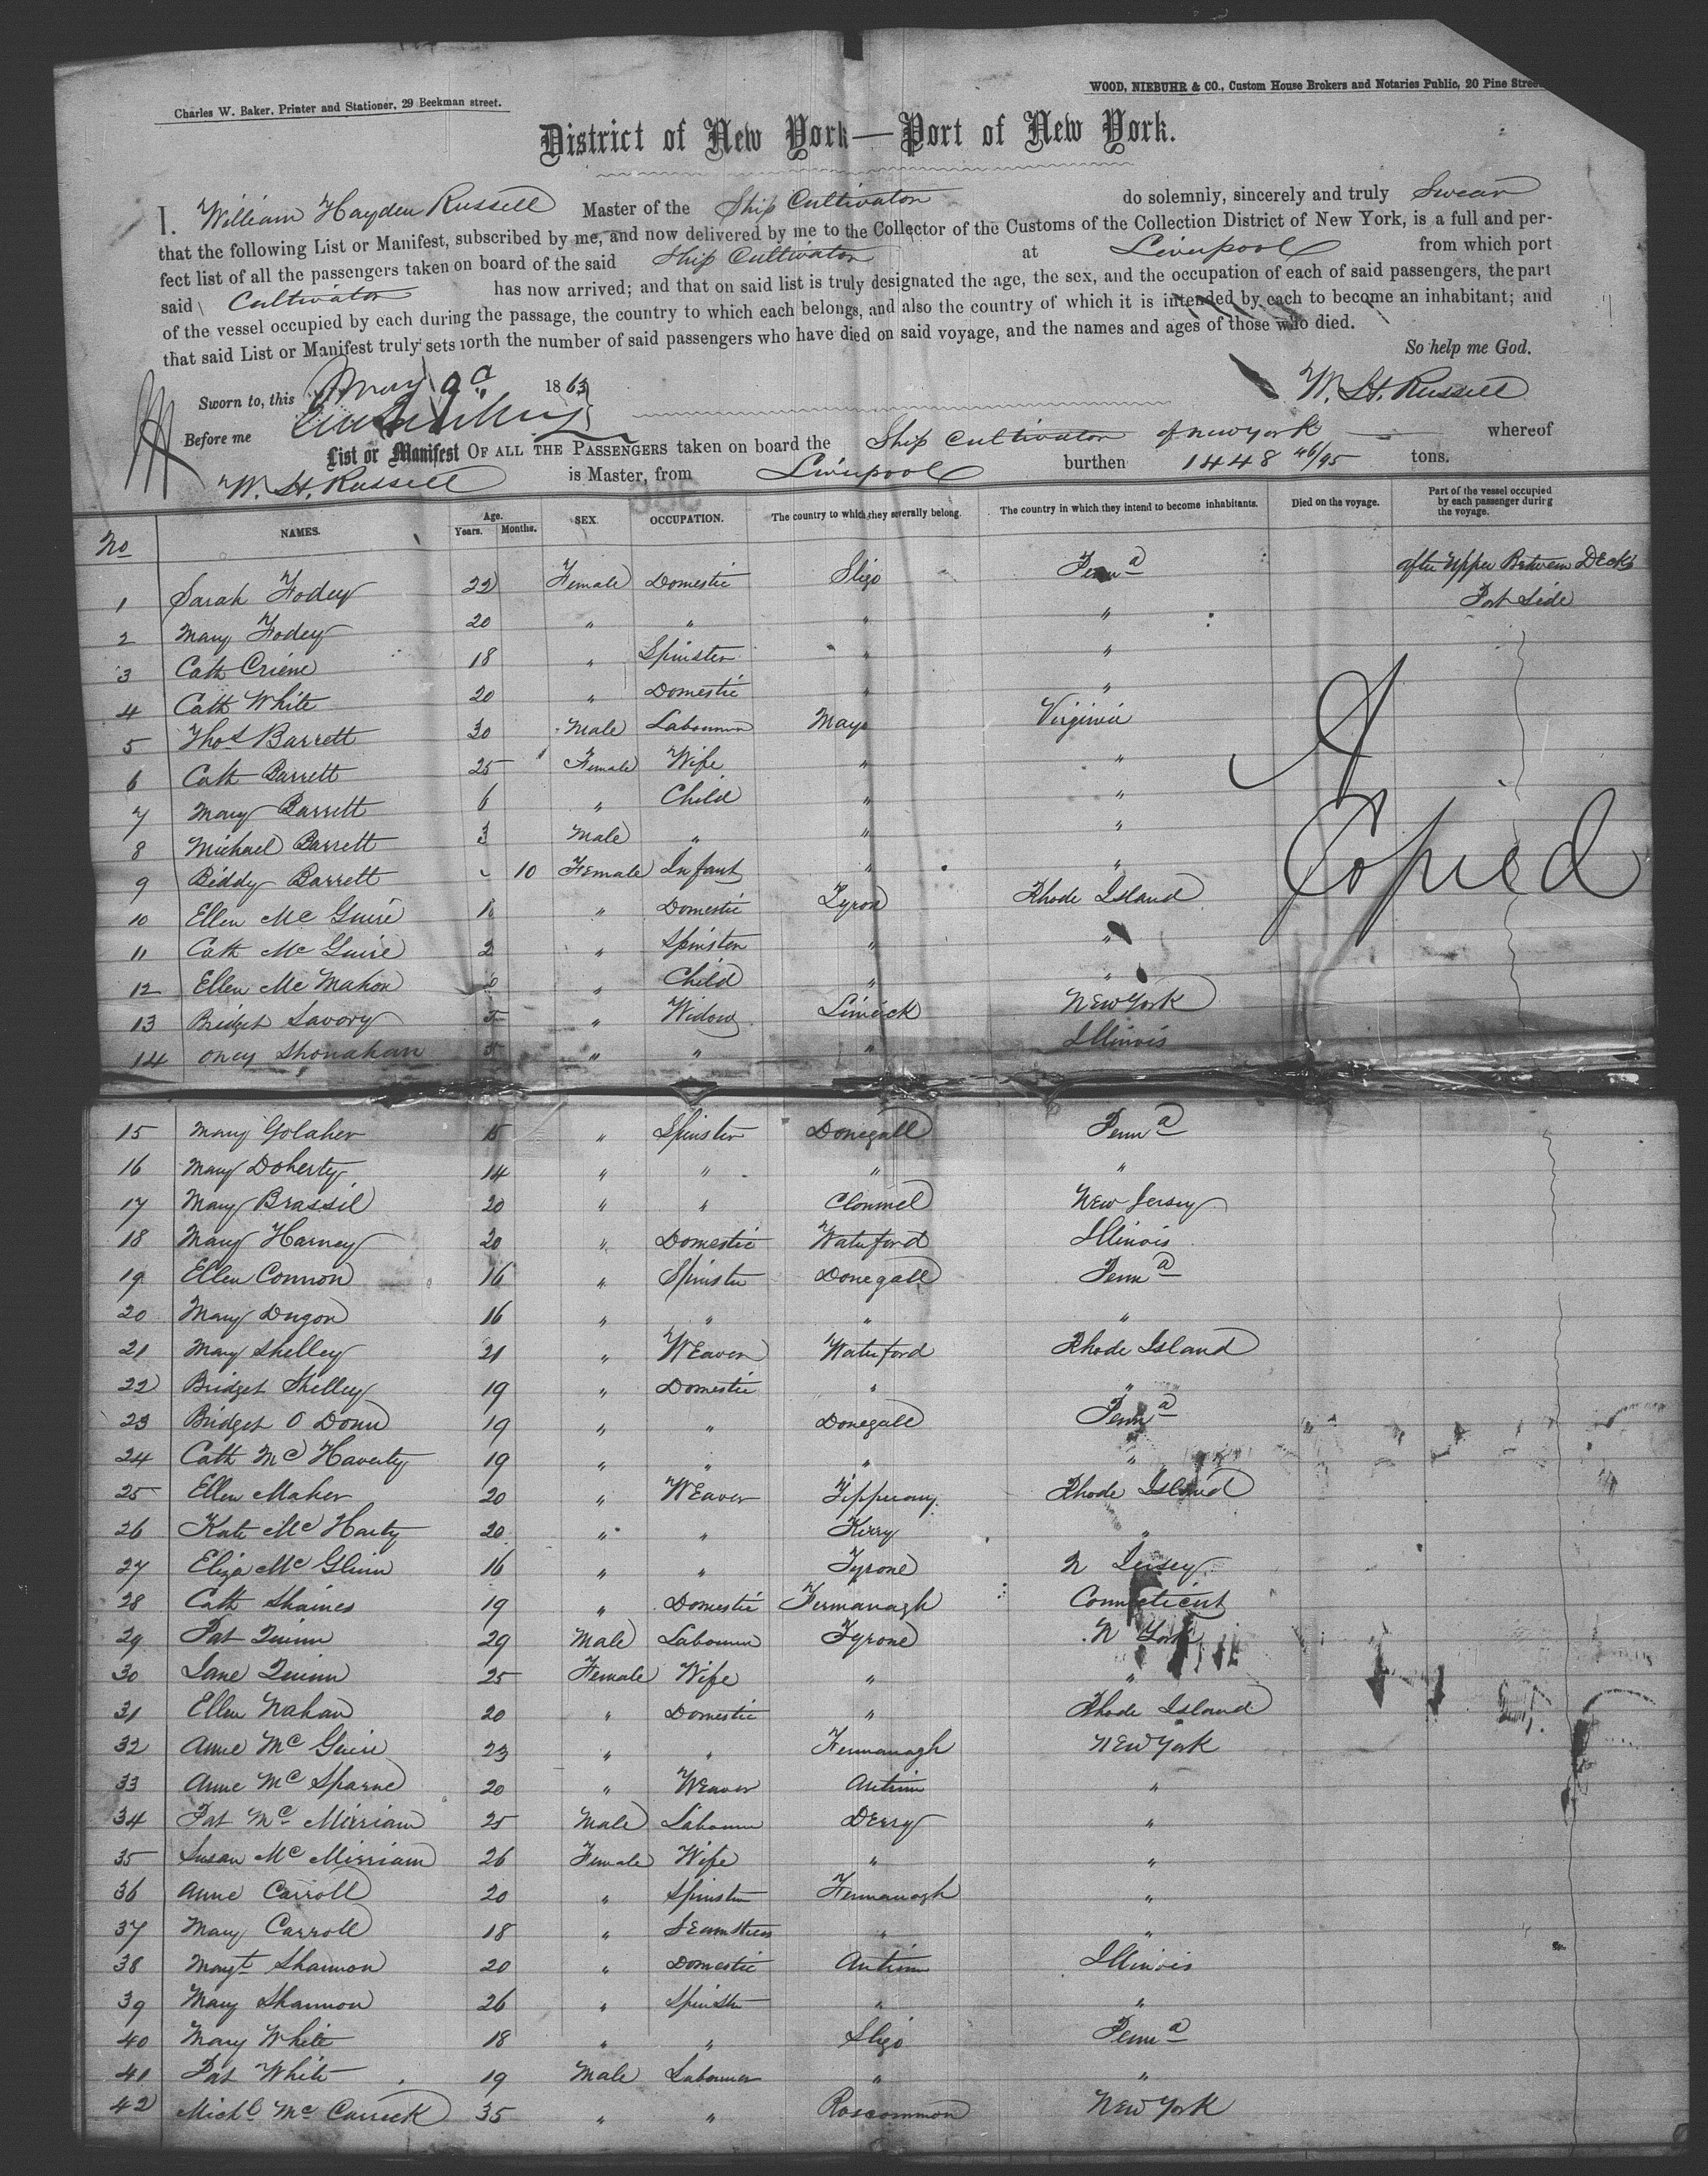 Charles W. Baker, Printer and Stationer, 29 Beekman street.
WOOD, NIEBUHR & CO., Custom House Brokers and Notaries Public, 20 Pine Street
District of New York—Port of New York.
I, William Hayden Russell Master of the Ship Cultivator do solemnly, sincerely and truly Swear
that the following List or Manifest, subscribed by me, and now delivered by me to the Collector of the Customs of the Collection District of New York, is a full and per-
fect list of all the passengers taken on board of the said Ship Cultivator at Liverpool from which port
said Cultivator has now arrived; and that on said list is truly designated the age, the sex, and the occupation of each of said passengers, the part
of the vessel occupied by each during the passage, the country to which each belongs, and also the country of which it is intended by each to become an inhabitant; and
that said List or Manifest truly sets forth the number of said passengers who have died on said voyage, and the names and ages of those who died.
So help me God.
Sworn to, this May 1863
W. H. Russell
Before me
List or Manifest OF ALL THE PASSENGERS taken on board the Ship Cultivator of New York whereof
W. H. Russell is Master, from Liverpool burthen 1448 46/95 tons.
No NAMES. Age. Years. Months. SEX. OCCUPATION. The country to which they severally belong. The country in which they intend to become inhabitants. Died on the voyage. Part of the vessel occupied by each passenger during the voyage.
1 Sarah Fodey 22 Female Domestic Sligo Penna after Upper Between Decks
Port Side
2 Mary Fodey 20 " " " "
3 Cath Criene 18 " Spinster " "
4 Cath White 20 " Domestic " "
5 Thos Barrett 30 Male Labourer Mayo Virginia
6 Cath Barrett 25 Female Wife " "
7 Mary Barrett 6 " Child " "
8 Michael Barrett 3 Male " " "
9 Biddy Barrett 10 Female Infant " "
Copied
10 Ellen Mc Guire " Domestic Tyron Rhode Island
11 Cath Mc Guire " Spinster " "
12 Ellen Mc Mahon " Child " "
13 Bridget Savory " Widow Limrick New York
14 Oney Shonahan " " " Illinois
15 Mary Golaher 15 " Spinster Donegall Penna
16 Mary Doherty 14 " " " "
17 Mary Brassil 20 " " Clonmel New Jersey
18 Mary Harney 20 " Domestic Waterford Illinois
19 Ellen Connon 16 " Spinster Donegall Penna
20 Mary Dugon 16 " " " "
21 Mary Shelley 21 " Weaver Waterford Rhode Island
22 Bridget Shelley 19 " Domestic " "
23 Bridget O Donn 19 " " Donegall Penna
24 Cath Mc Haverty 19 " " " "
25 Ellen Maher 20 " Weaver Tipperary Rhode Island
26 Kate Mc Harty 20 " " Kerry "
27 Eliza Mc Glinn 16 " " Tyrone N Jersey
28 Cath Shaines 19 " Domestic Fermanagh Connecticut
29 Pat Quinn 29 Male Labourer Tyrone N York
30 Jane Quinn 25 Female Wife " "
31 Ellen Nahan 20 " Domestic " Rhode Island
32 Anne Mc Guire 23 " " Fermanagh New York
33 Anne Mc Sparne 20 " Weaver Antrim "
34 Pat Mc Mirriam 25 Male Labourer Derry "
35 Susan Mc Mirriam 26 Female Wife " "
36 Anne Carroll 20 " Spinster Fermanagh "
37 Mary Carroll 18 " Seamstress " "
38 Margt Shannon 20 " Domestic Antrim Illinois
39 Mary Shannon 26 " Spinster " "
40 Mary White 18 " " Sligo Penna
41 Pat White 19 Male Labourer " "
42 Michl Mc Carrick 35 " " Roscommon New York